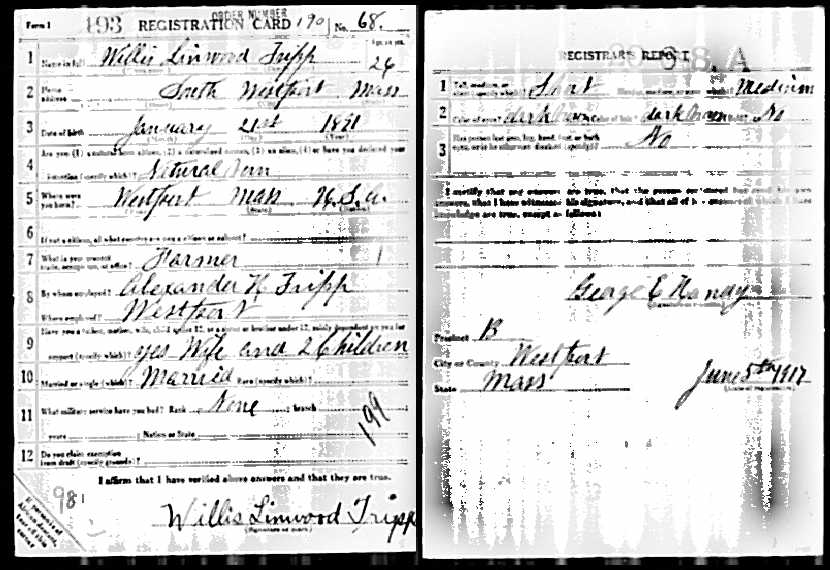 Form 1 493 REGISTRATION CARD ORDER NUMBER 190 No. 68.
1 Name in full Willis Linwood Tripp Age, in yrs. 26
2 Home address South Westport Mass
3 Date of birth January 21st 1891
(Month) (Day) (Year)
4 Are you (1) a natural-born citizen, (2) a naturalized citizen, (3) an alien, (4) or have you declared your
intention (specify which)? Natural born
5 Where were you born? Westport Mass U.S.A.
6 If not a citizen, of what country are you a citizen or subject?
7 What is your present trade, occupation, or office? Farmer 1
8 By whom employed? Alexander H Tripp
Where employed? Westport
9 Have you a father, mother, wife, child under 12, or a sister or brother under 12, solely dependent on you for
support (specify which)? yes Wife and 2 Children
10 Married or single (which)? Married Race (specify which)?
11 What military service have you had? Rank None ; branch
years ; Nation or State
199
12 Do you claim exemption from draft (specify grounds)?
I affirm that I have verified above answers and that they are true.
981
Willis Linwood Tripp
(Signature or mark)
If person is of African descent, tear off this corner
REGISTRAR'S REPORT
1 Tall, medium, or short (specify which)? Short Slender, medium, or stout (which)? Medium
2 Color of eyes? dark brown Color of hair? dark brown Bald? No
3 Has person lost arm, leg, hand, foot, or both eyes, or is he otherwise disabled (specify)? No
I certify that my answers are true, that the person registered has read his own
answers, that I have witnessed his signature, and that all of his answers of which I have
knowledge are true, except as follows:
George E Handy
Precinct B
City or County Westport
State Mass June 5th 1917
(Date of registration)